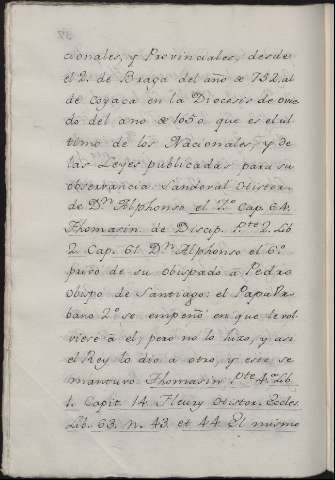 cionales, y Provinciales, desde
el 2.º de Braga del año de 792. al
de Coyaca en la Diocesis de Ovie
do del año de 1050 que es el ul
timo de los Nacionales, y de
las Leyes publicadas para su
observancia. Sandoval Histor.
de D.n Alphonso el 7.º Cap. 64.
Thomasin. de Discip. P.te 2. Lib
2. Cap. 61. D.n Alphonso el 6.º
privó de su obispado à Pedro
Obispo de Santiago: el Papa Ur
bano 2.º se empeñó en que le vol
viese à el; pero no lo hizo, y asi
el Rey lo dio à otro, y este se
mantuvo. Thomasin P.te 4.a Lib
1. Capit. 14. Fleury Histor. Eccles.
Lib. 63. n. 43. et 44. El mismo